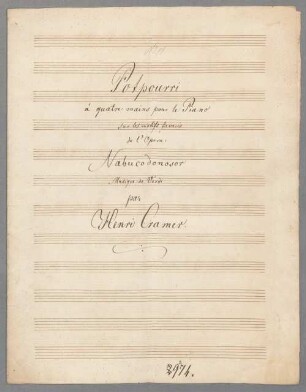 Potpourri
à quatre mains pour le Piano
sur les motifs favoris
de l'Opera
Nabucodonosor
Musique de Verdi
par
Henri Cramer.
2974.